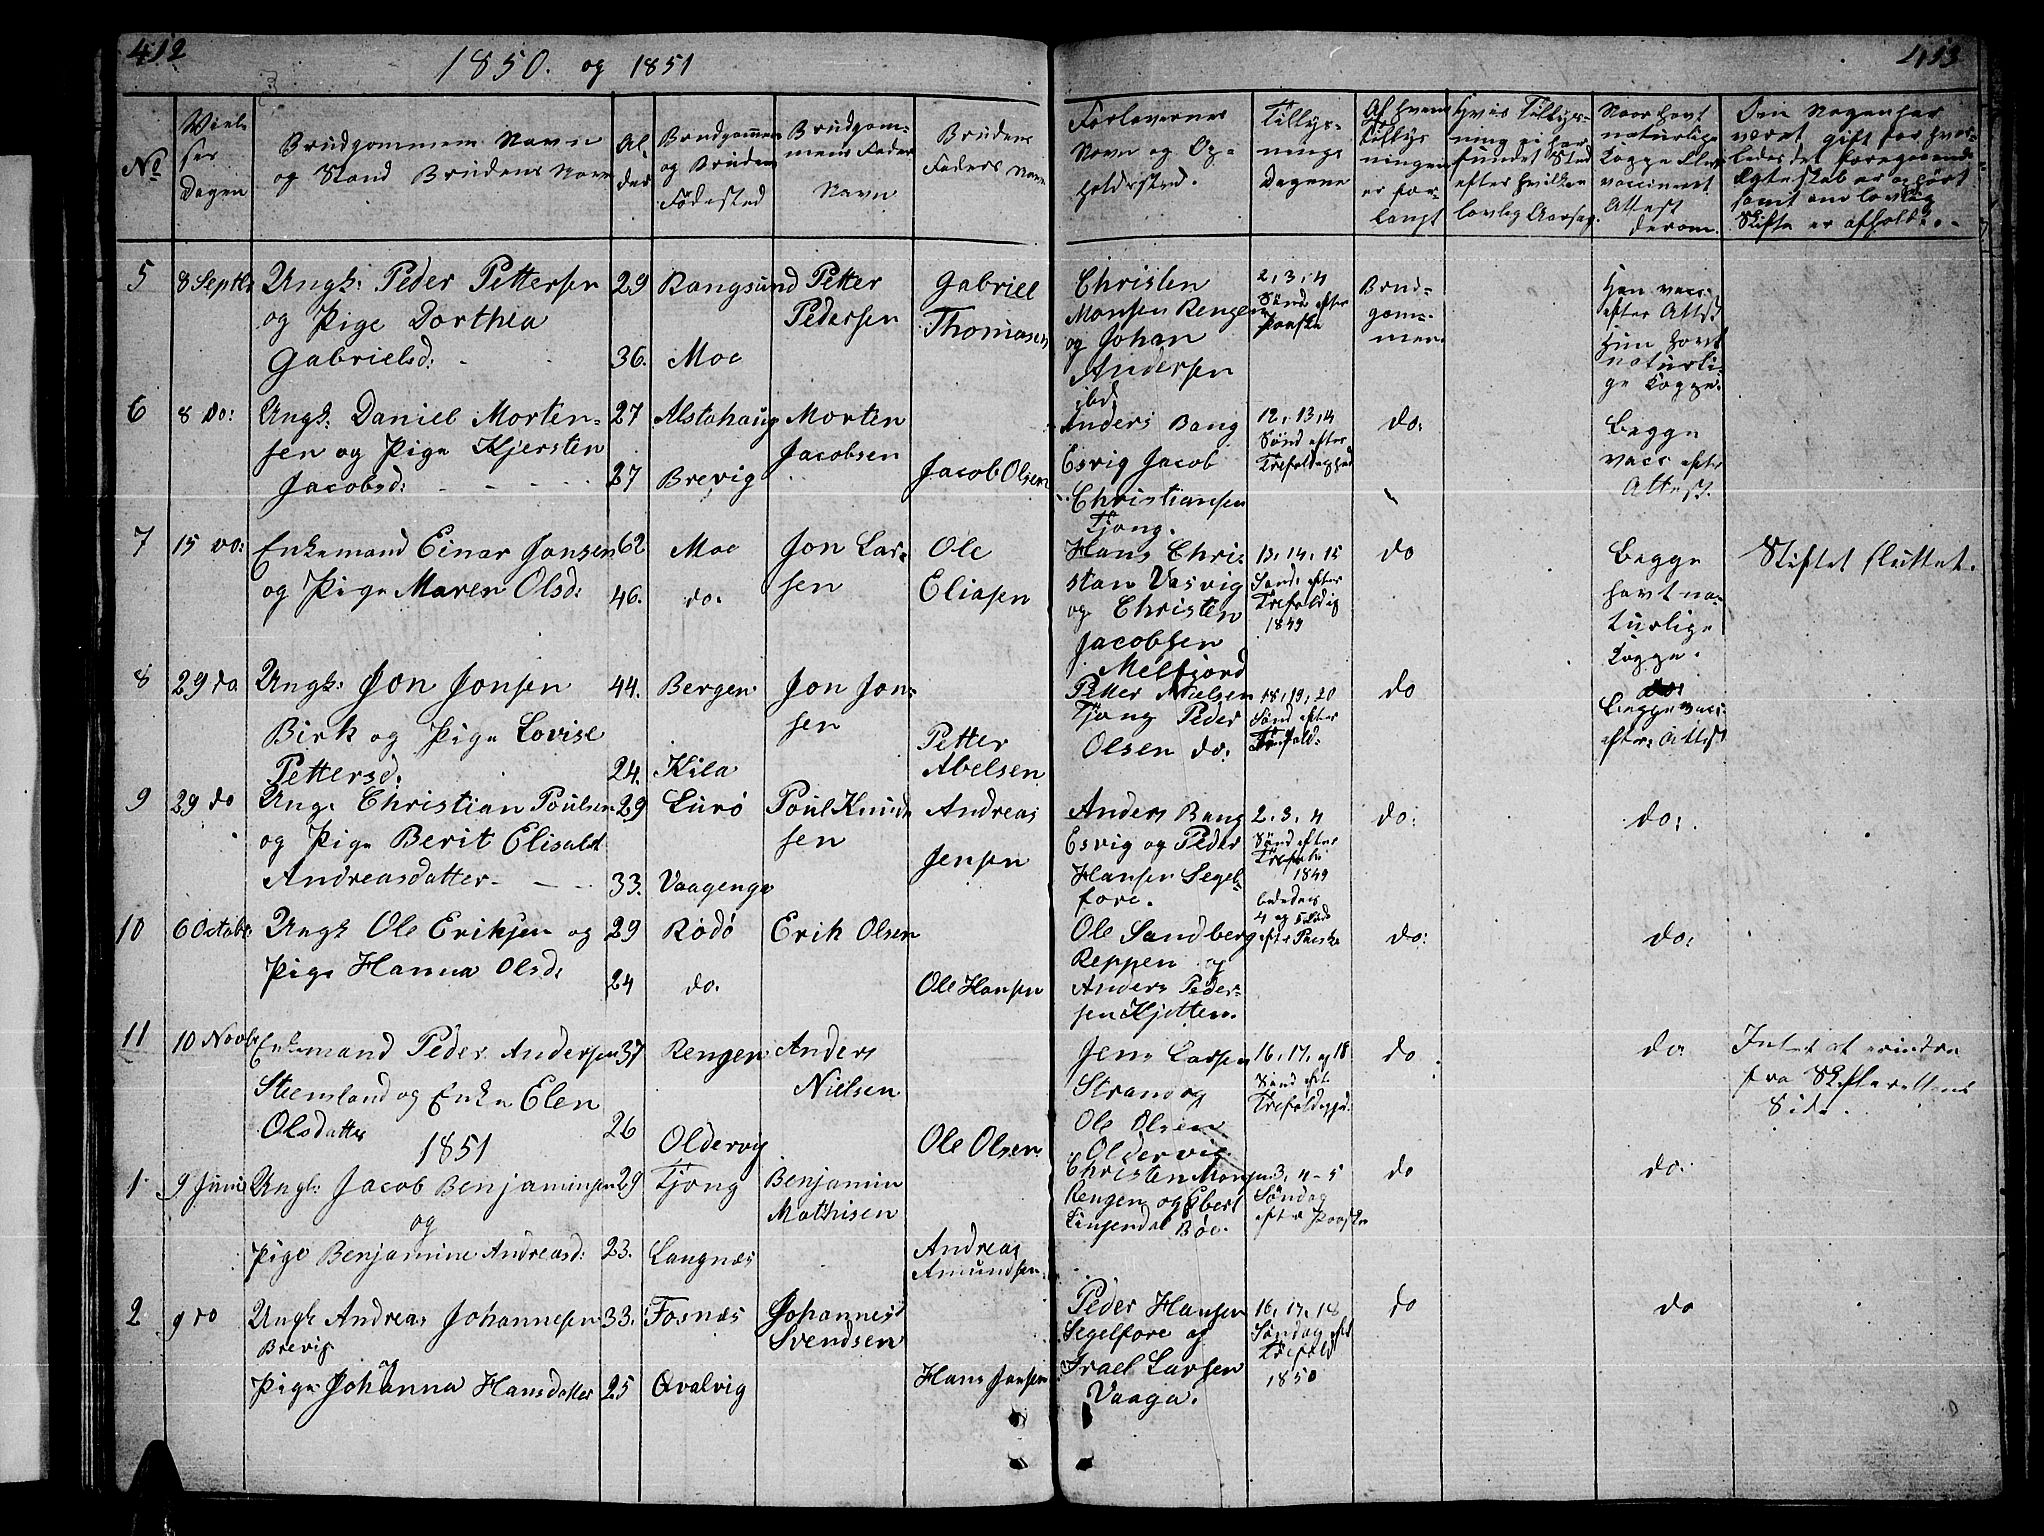 412
1850. og 1851
413
No
Viel-
ses
Dagen
Brudgommens Navn
og Stand Brudens Navn
Al
der
Brudgommens
og Brudens
Fødested
Brudgom-
mens Faders
Navn
Brudens
Faders Navn
Forlovernes
Navn og Op-
holdssted.
Tillys-
nings
Dagene
Af hvem
Tillys
ningen
er for-
langt
Hvis Tillys-
ning ei har
fundet Sted
efter hvilken
lovlig Aarsag.
Naar havt
naturlige
Kopper eller
vaccineret
Attest
derom.
Om Nogen har
været gift før hvor-
ledes det foregaaende
Ægteskab er ophørt
samt om lovlig
Skifte er afholdt.
5 8 Septbr Ungk: Peder Pettersen 29 Rangsund Petter Gabriel
og Pige Dorthea Pedersen Thomasen
Gabrielsd: 36. Moe
Christen 2, 3, 4 Brud- Han vacc:
Monsen Rengen Sønd efter gom- efter Attest
og Johan Paaske men Hun havt
Andersen naturli-
ibd: ge Kopper.
6 8 do: Ungk: Daniel Morten- 27 Alstahaug Morten
sen og Pige Kjersten Jacobsen
Jacobsd: 27 Brevig Jacob Olsen
Anders Bang 12, 13, 14 do: Begge
Esvig Jacob Sønd efter vacc efter
Christiansen Trefoldighed Attest.
Tjong.
7 15 do: Enkemand Einar Jonsen 62 Moe Jon Lar- Ole
og Pige Maren Olsd: 46. do. sen Eliasen
Hans Chri- 13, 14, 15 do Begge Skiftet sluttet.
stan Vasvig Sønd: efter havt na-
og Christen Trefoldig turlige
Jacobsen 1849 Kopper.
Melfjord
8 29 do. Ungk: Jon Jonsen 44. Bergen Jon Jon-
Birk og Pige Lovise sen Petter
Pettersd: 24. Kila Abelsen
Petter Nielsen 18, 19, 20 do
Tjong Peder Sønd efter Begge vacc:
Olsen do: Trefold: efter Attest
9 29 do Ung: Christian Poulsen 29 Lurø Poul Knud Andreas
og Pige Berit Elisabt sen Jensen
Andreasdatter 33. Vaagenge
Anders Bang 2, 3, 4 do: do:
Esvig og Peder Sønd efter
Hansen Segel- Trefoldi 1849
fore.
10 6 Octobr Ungk Ole Eriksen og 29 Rødø Erik Olsen
Pige Hanna Olsd: 24 do. Ole Hansen
Ole Sandberg 4 og 5 do: do:
Reppen og efter Paaske
Anders Peder-
sen Kjotten.
11 10 Novbr Enkemand Peder Andersen 37 Rengen Anders
Steensland og Enke Elen Nielsen
Olsdatter 26 Oldervig Ole Olsen
Jens Larsen 16, 17, og 18 do do. Intet at erindre
Strand og Sønd eft fra Skifterettens
Ole Olsen Trefoldighd. Side.
Oldervig
1851
1 9 Junii Ungk: Jacob Benjaminsen 29 Tjong Benjamin
og Mathisen
Pige Benjamine Andreasd: 23. Langnæs Andreas
Amundsen.
Christen Monsen 3, 4 - 5 do do.
Rengen og Ebert Søndag
Bøe. efter Paaske
2 9 do Ungk Andreas Johannesen 33. Fosnæs Johannes
Brevig Svendsen
og
Pige Johanna Hansdatter 25 Qvalvig Hans Jonsen
Peder Hansen 16, 17, 18 do do
Segelfore og Søndag eft
Israel Larsen Trefold
Vaaga. 1850